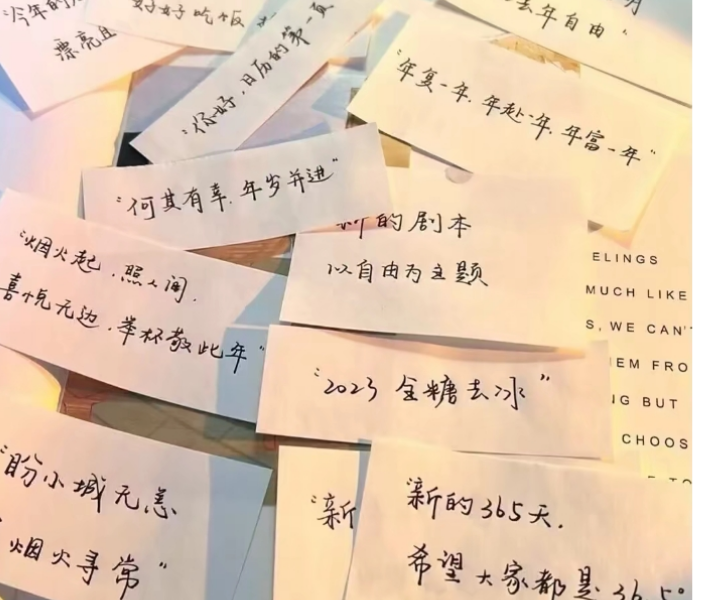 "今年的
漂亮且
好好吃饭
"你好,日历的第一页
去年自由"
月
"年复一年,年赴一年,年富一年"
"何其有幸,年岁并进"
新的剧本
以自由为主题
"烟火起,照人间,
喜悦无边,举杯敬此年"
"2023 全糖去冰"
"盼小城无恙
烟火寻常"
"新
新的365天,
希望大家都是36.5°
ELINGS
MUCH LIKE
S, WE CAN'
EM FRO
NG BUT
CHOOS